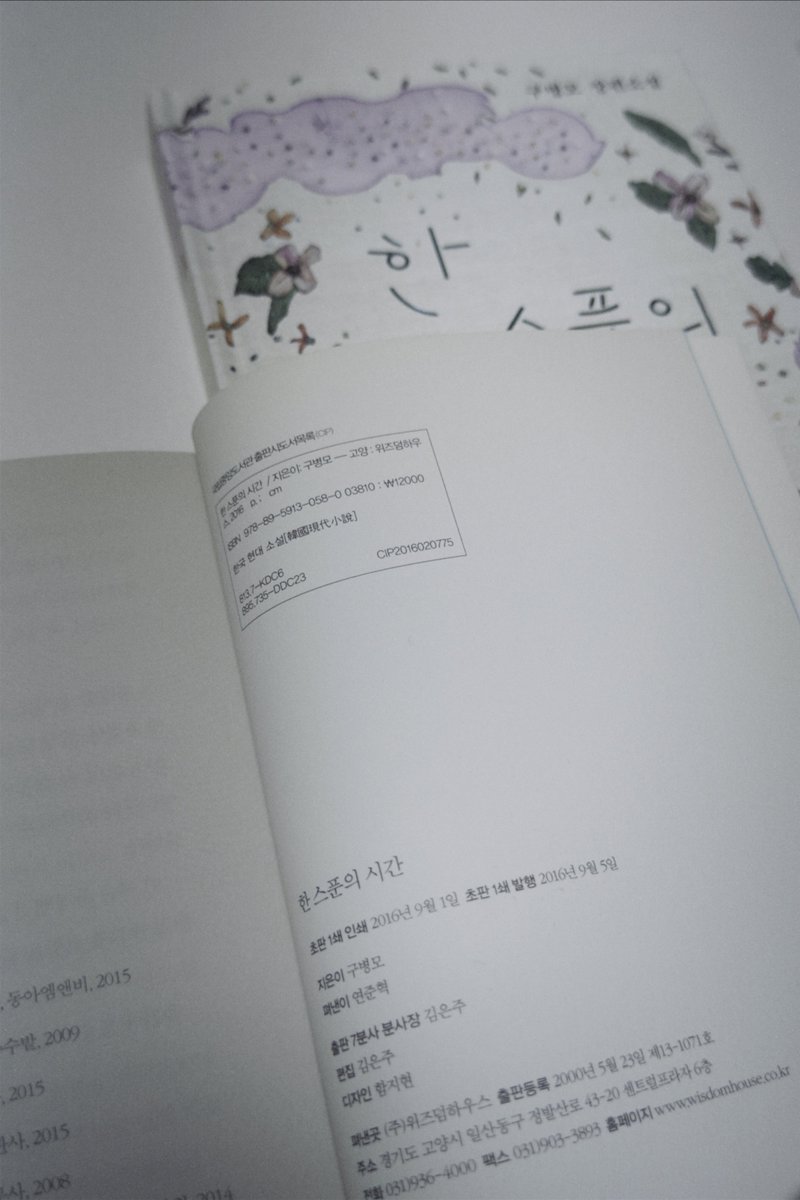 구병모 장편소설
한
스푼의
국립중앙도서관 출판시도서목록(CIP)
한 스푼의 시간 / 지은이: 구병모 — 고양 : 위즈덤하우
스, 2016
p. ; cm
ISBN 978-89-5913-058-0 03810 : ₩12000
한국 현대 소설[韓國現代小說]
813.7-KDC6
895.735-DDC23
CIP2016020775
, 동아엠앤비, 2015
수밭, 2009
, 2015
사, 2015
사, 2008
2014
한 스푼의 시간
초판 1쇄 인쇄 2016년 9월 1일 초판 1쇄 발행 2016년 9월 5일
지은이 구병모
펴낸이 연준혁
출판 7분사 분사장 김은주
편집 김은주
디자인 함지현
펴낸곳 (주)위즈덤하우스 출판등록 2000년 5월 23일 제13-1071호
주소 경기도 고양시 일산동구 정발산로 43-20 센트럴프라자 6층
전화 031)936-4000 팩스 031)903-3893 홈페이지 www.wisdomhouse.co.kr